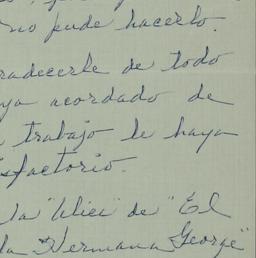 no pude hacerlo.
radecerle de todo
ya acordado de
trabajo le haya
sfactorio.
la "Alici" de "El
la Hermana George"